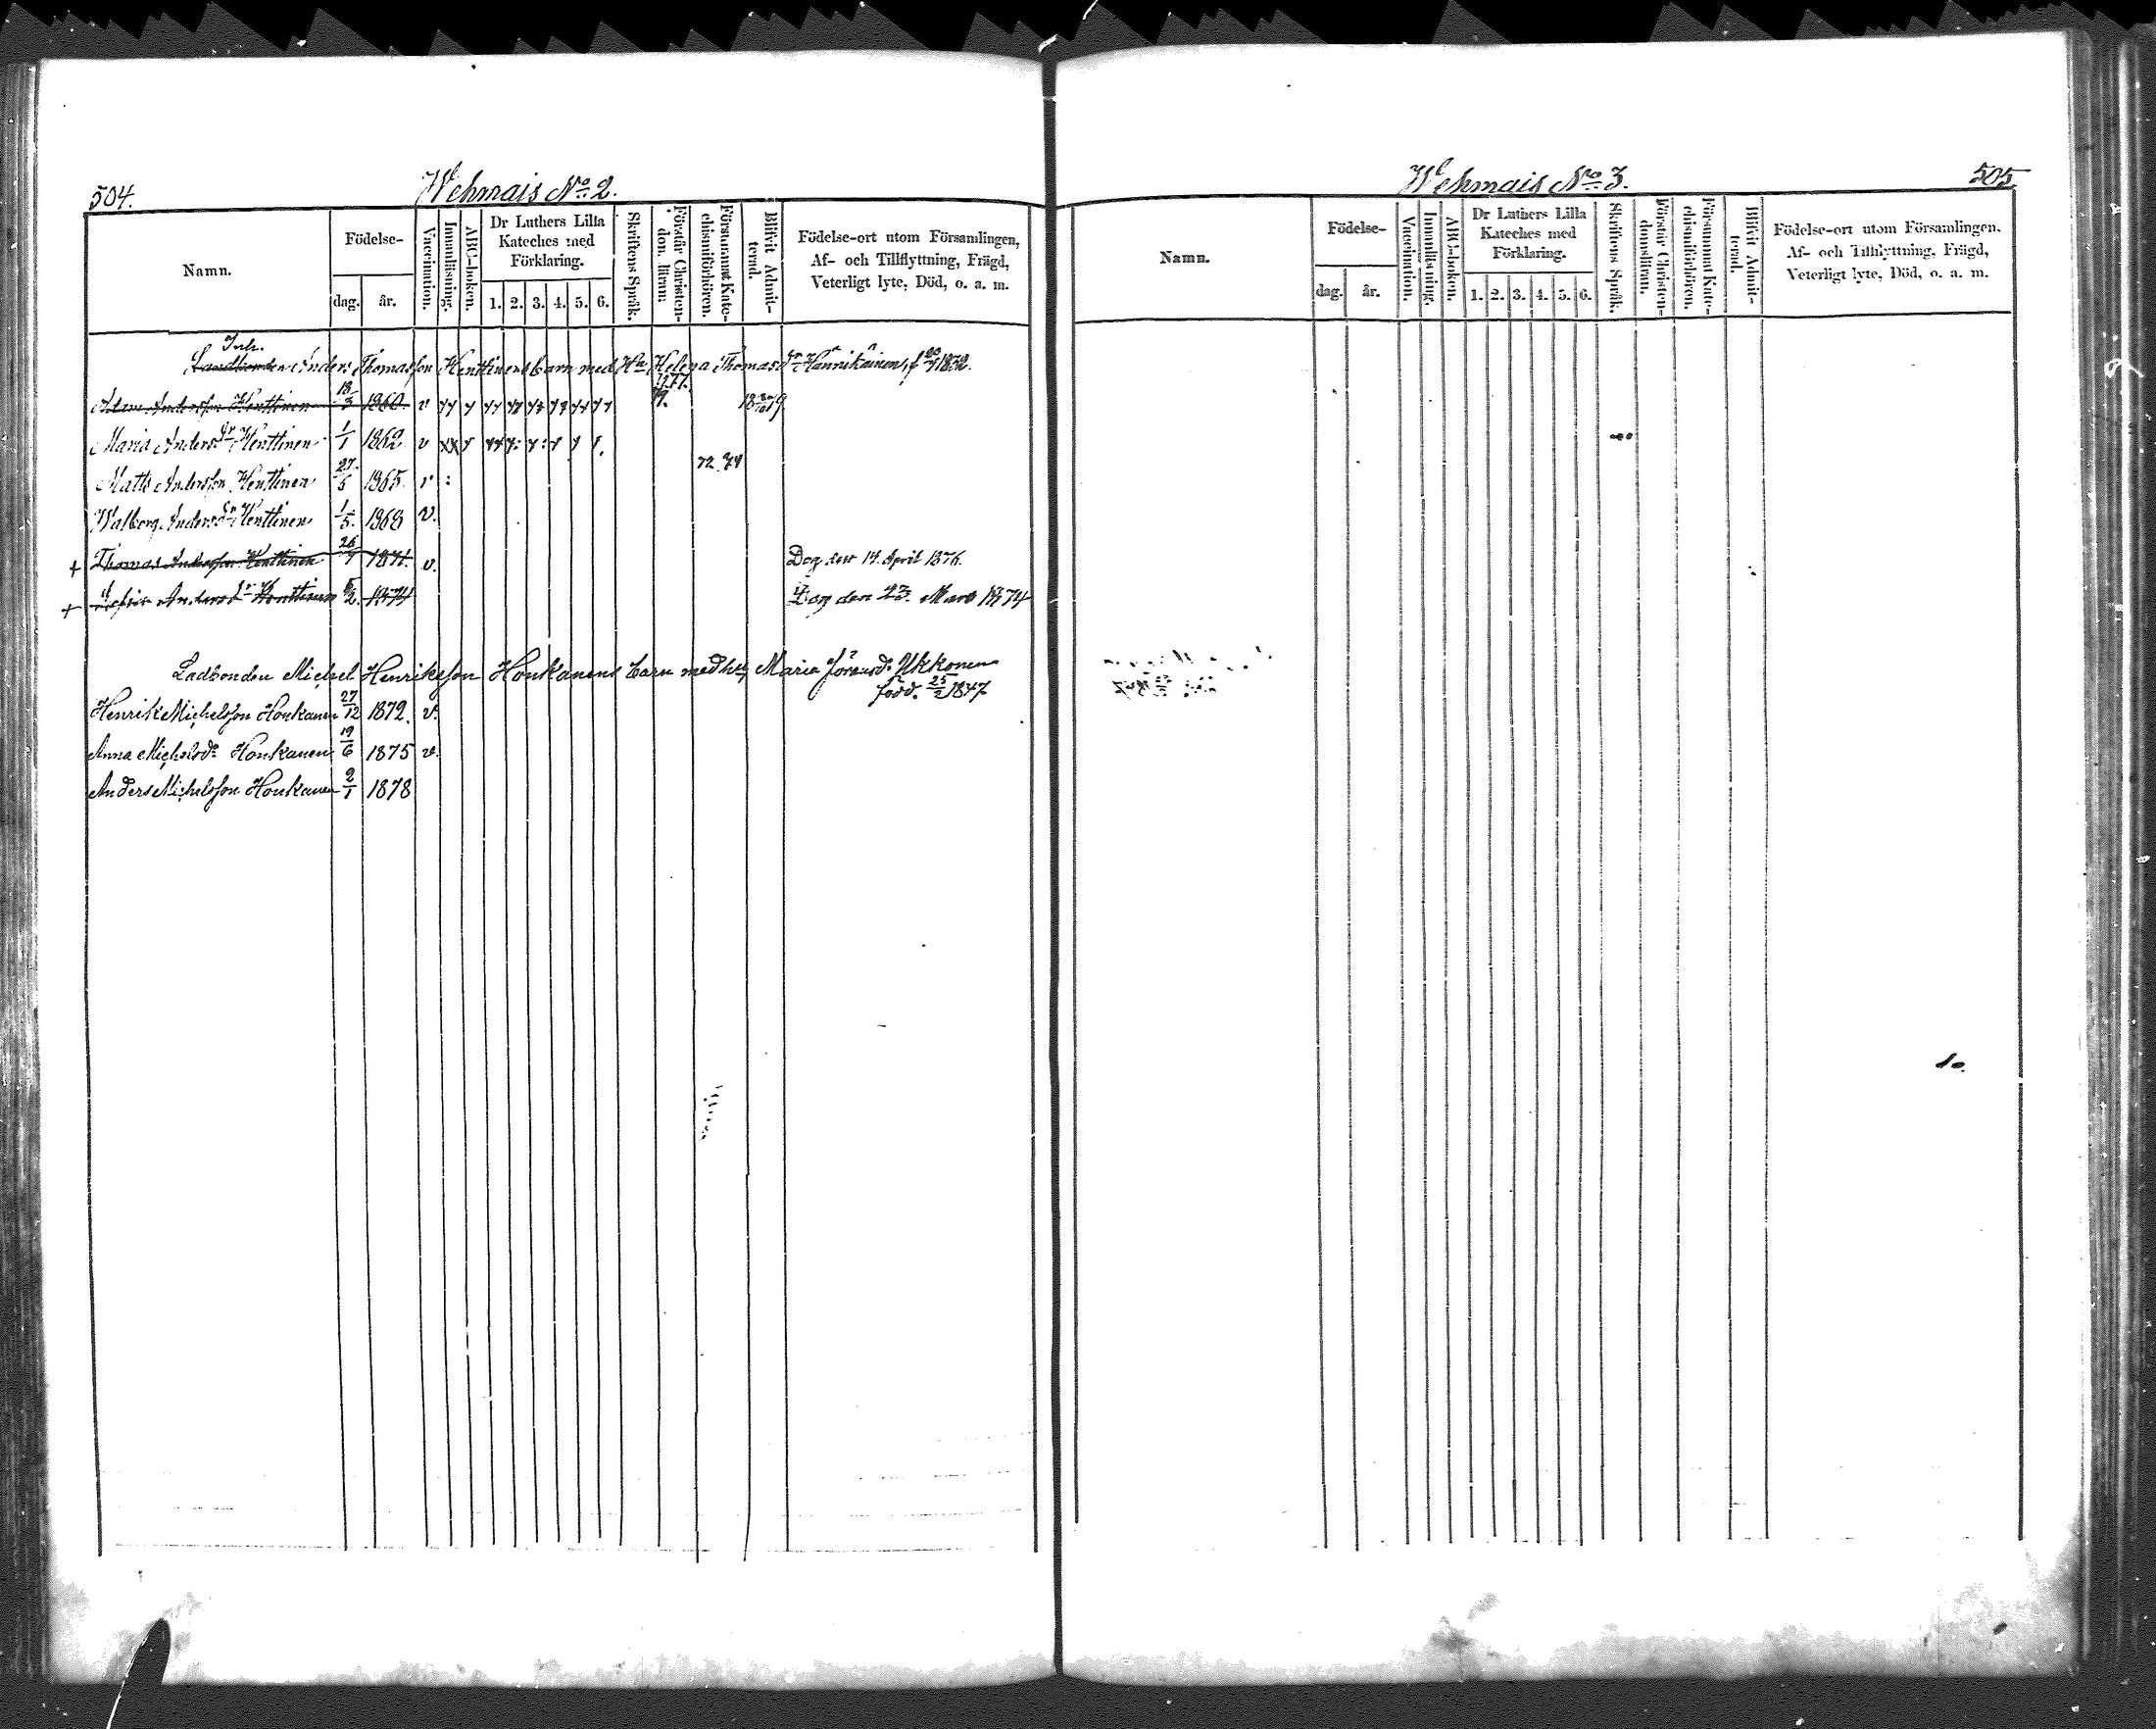 504.
Wehmais No 2.
Namn.
Födelse-
dag.
år.
Vaccination.
Innanläsning.
ABC-boken.
Dr Luthers Lilla
Kateches med
Förklaring.
1. 2. 3. 4. 5. 6.
Skriftens Språk.
Förstår Christen-
dom. läran:
Försummat Kate-
chismiförhören.
Blifvit Admit-
terad.
Födelse-ort utom Församlingen,
Af- och Tillflyttning, Frägd,
Veterligt lyte, Död, o. a. m.
Inh.
Landbonden Anders Thomasson Henttinens barn med Hu Helena Thomasdr Hännikäinen, f 1832.
Adam Andersson Henttinen 18/3 1860. v
Maria Andersdr Henttinen 1/1 1862 v
72. 74
Matts Andersson Henttinen 27/5 1865. v :
Walborg Andersdr Henttinen 1/5. 1868 v.
+ Thomas Andersson Henttinen 26/7 1871. v. Dog den 14. April 1876.
+ Andersdr Henttinen 5/2. 1874 Dog den 23. Mars 1874
Ladbonden Michel Henriksson Honkanens barn med hu, Maria Göransdr Ukkonen
född. 25/2 1847
Henrik Michelsson Honkanen 27/12 1872. v.
Anna Michelsdr Honkanen 19/6 1875 v.
Anders Michelsson Honkanen 2/1 1878
Wehmais No 3.
505
Namn.
Födelse-
dag.
år.
Vaccination.
Innanläsning.
ABC-boken.
Dr Luthers Lilla
Kateches med
Förklaring.
1. 2. 3. 4. 5. 6.
Skriftens Språk.
Förstår Christen-
domsläran.
Försummat Kate-
chismiförhören.
Blifvit Admit-
terad.
Födelse-ort utom Församlingen.
Af- och Tillflyttning, Frägd,
Veterligt lyte, Död, o. a. m.